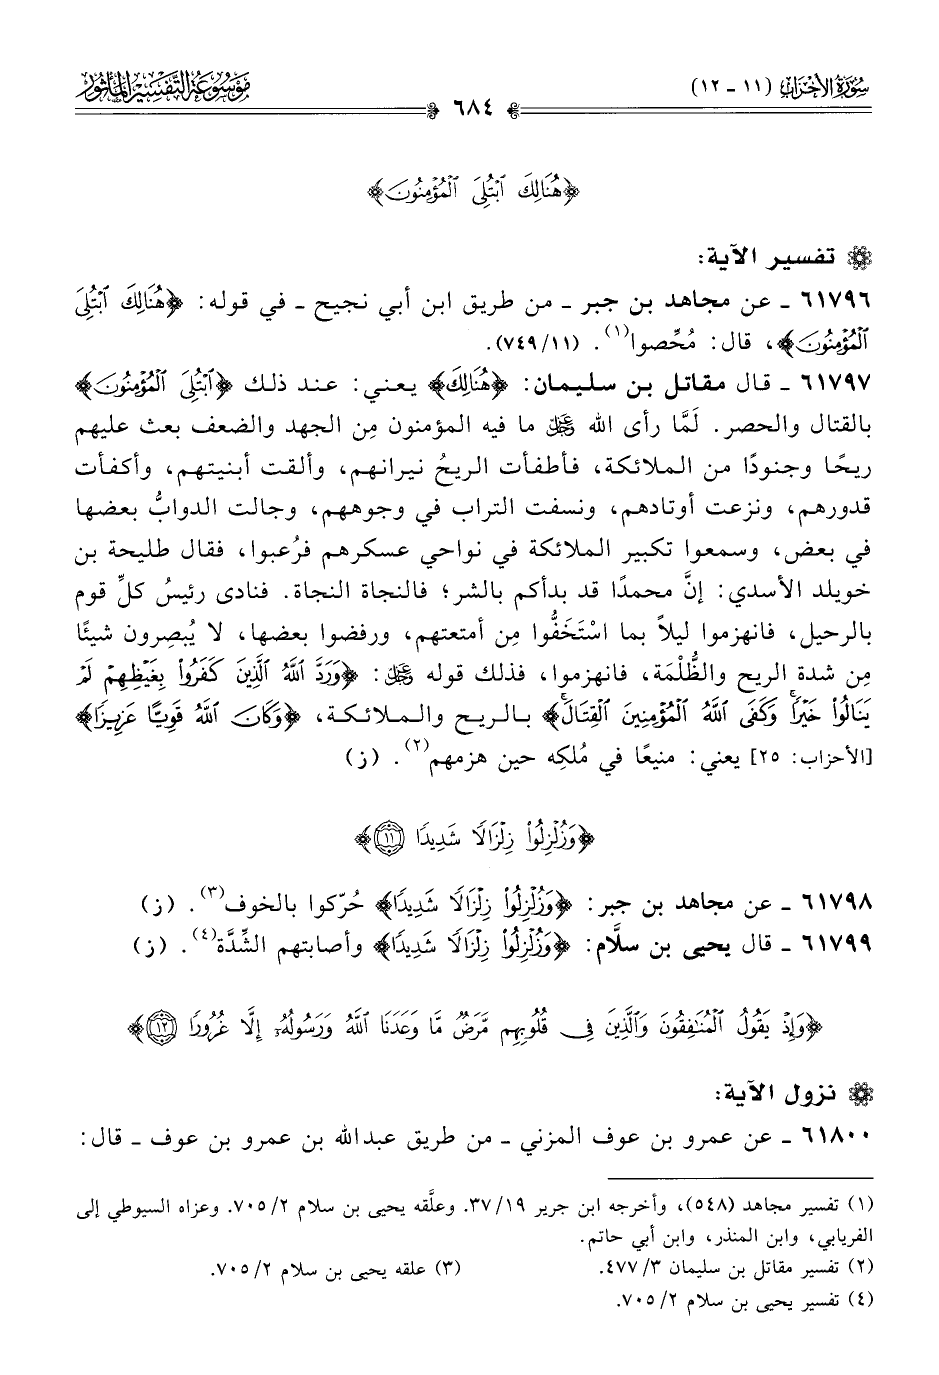 سورة الأحزاب (١١ - ١٢)
٦٨٤
موسوعة التفسير المأثور
﴿هُنَالِكَ ابْتُلِيَ الْمُؤْمِنُونَ﴾
تفسير الآية:
٦١٧٩٦ - عن مجاهد بن جبر - من طريق ابن أبي نجيح - في قوله: ﴿هُنَالِكَ ابْتُلِيَ
الْمُؤْمِنُونَ﴾، قال: مُحِّصوا(١). (٧٤٩/١١).
٦١٧٩٧ - قال مقاتل بن سليمان: ﴿هُنَالِكَ﴾ يعني: عند ذلك ﴿ابْتُلِيَ الْمُؤْمِنُونَ﴾
بالقتال والحصر. لَمَّا رأى الله ﷿ ما فيه المؤمنون مِن الجهد والضعف بعث عليهم
ريحًا وجنودًا من الملائكة، فأطفأت الريحُ نيرانهم، وألقت أبنيتهم، وأكفأت
قدورهم، ونزعت أوتادهم، ونسفت التراب في وجوههم، وجالت الدوابُّ بعضها
في بعض، وسمعوا تكبير الملائكة في نواحي عسكرهم فرُعبوا، فقال طليحة بن
خويلد الأسدي: إنَّ محمدًا قد بدأكم بالشر؛ فالنجاة النجاة. فنادى رئيسُ كلِّ قوم
بالرحيل، فانهزموا ليلاً بما اسْتَخَفُّوا مِن أمتعتهم، ورفضوا بعضها، لا يُبصِرون شيئًا
مِن شدة الريح والظُّلْمَة، فانهزموا، فذلك قوله ﷿: ﴿وَرَدَّ اللَّهُ الَّذِينَ كَفَرُوا بِغَيْظِهِمْ لَمْ
يَنَالُوا خَيْرًا ۚ وَكَفَى اللَّهُ الْمُؤْمِنِينَ الْقِتَالَ ۚ﴾ بالريح والملائكة، ﴿وَكَانَ اللَّهُ قَوِيًّا عَزِيزًا﴾
[الأحزاب: ٢٥] يعني: منيعًا في مُلكِه حين هزمهم(٢). (ز)
﴿وَزُلْزِلُوا زِلْزَالًا شَدِيدًا ١١﴾
٦١٧٩٨ - عن مجاهد بن جبر: ﴿وَزُلْزِلُوا زِلْزَالًا شَدِيدًا﴾ حُرّكوا بالخوف(٣). (ز)
٦١٧٩٩ - قال يحيى بن سلَّام: ﴿وَزُلْزِلُوا زِلْزَالًا شَدِيدًا﴾ وأصابتهم الشِّدَّة(٤). (ز)
﴿وَإِذْ يَقُولُ الْمُنَٰفِقُونَ وَالَّذِينَ فِي قُلُوبِهِم مَّرَضٌ مَّا وَعَدَنَا اللَّهُ وَرَسُولُهُ إِلَّا غُرُورًا ١٢﴾
نزول الآية:
٦١٨٠٠ - عن عمرو بن عوف المزني - من طريق عبدالله بن عمرو بن عوف - قال:
(١) تفسير مجاهد (٥٤٨)، وأخرجه ابن جرير ٣٧/١٩. وعلَّقه يحيى بن سلام ٧٠٥/٢. وعزاه السيوطي إلى
الفريابي، وابن المنذر، وابن أبي حاتم.
(٢) تفسير مقاتل بن سليمان ٤٧٧/٣. (٣) علقه يحيى بن سلام ٧٠٥/٢.
(٤) تفسير يحيى بن سلام ٧٠٥/٢.